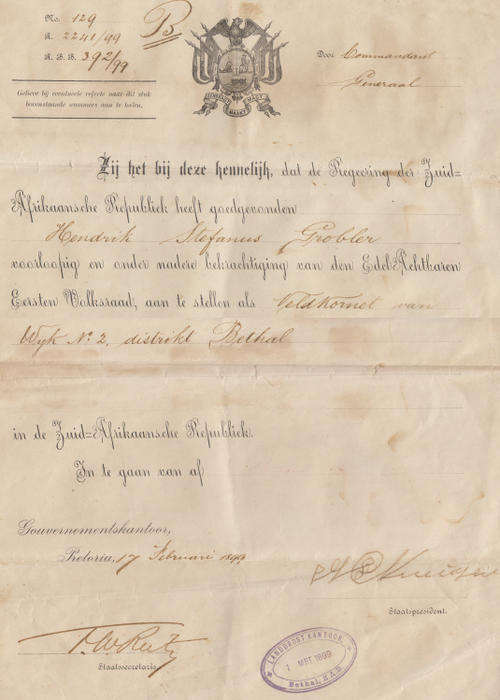 No. 129
R. 2241/99
R. S. B. 392/99
B
Door Commandant
Generaal
Gelieve bij eventuele refertе naar dit stuk
bovenstaande nummers aan te halen.
EENDRAGT MAAKT MAGT
Zij het bij deze kennelijk, dat de Regeering der Zuid=
Afrikaansche Republiek heeft goedgevonden
Hendrik Stefanus Grobler
voorloopig en onder nadere bekrachtiging van den EdelAchtbaren
Eersten Volksraad, aan te stellen als Veldkornet van
Wyk No 2, distrikt Bethal
in de Zuid=Afrikaansche Republiek.
In te gaan van af
Gouvernementskantoor,
Pretoria, 17 Februari 1899
Staatspresident.
F. W. Reitz
Staatssecretaris
LANDDROST KANTOOR
1 MEI 1899
Bethal, Z.A.R.